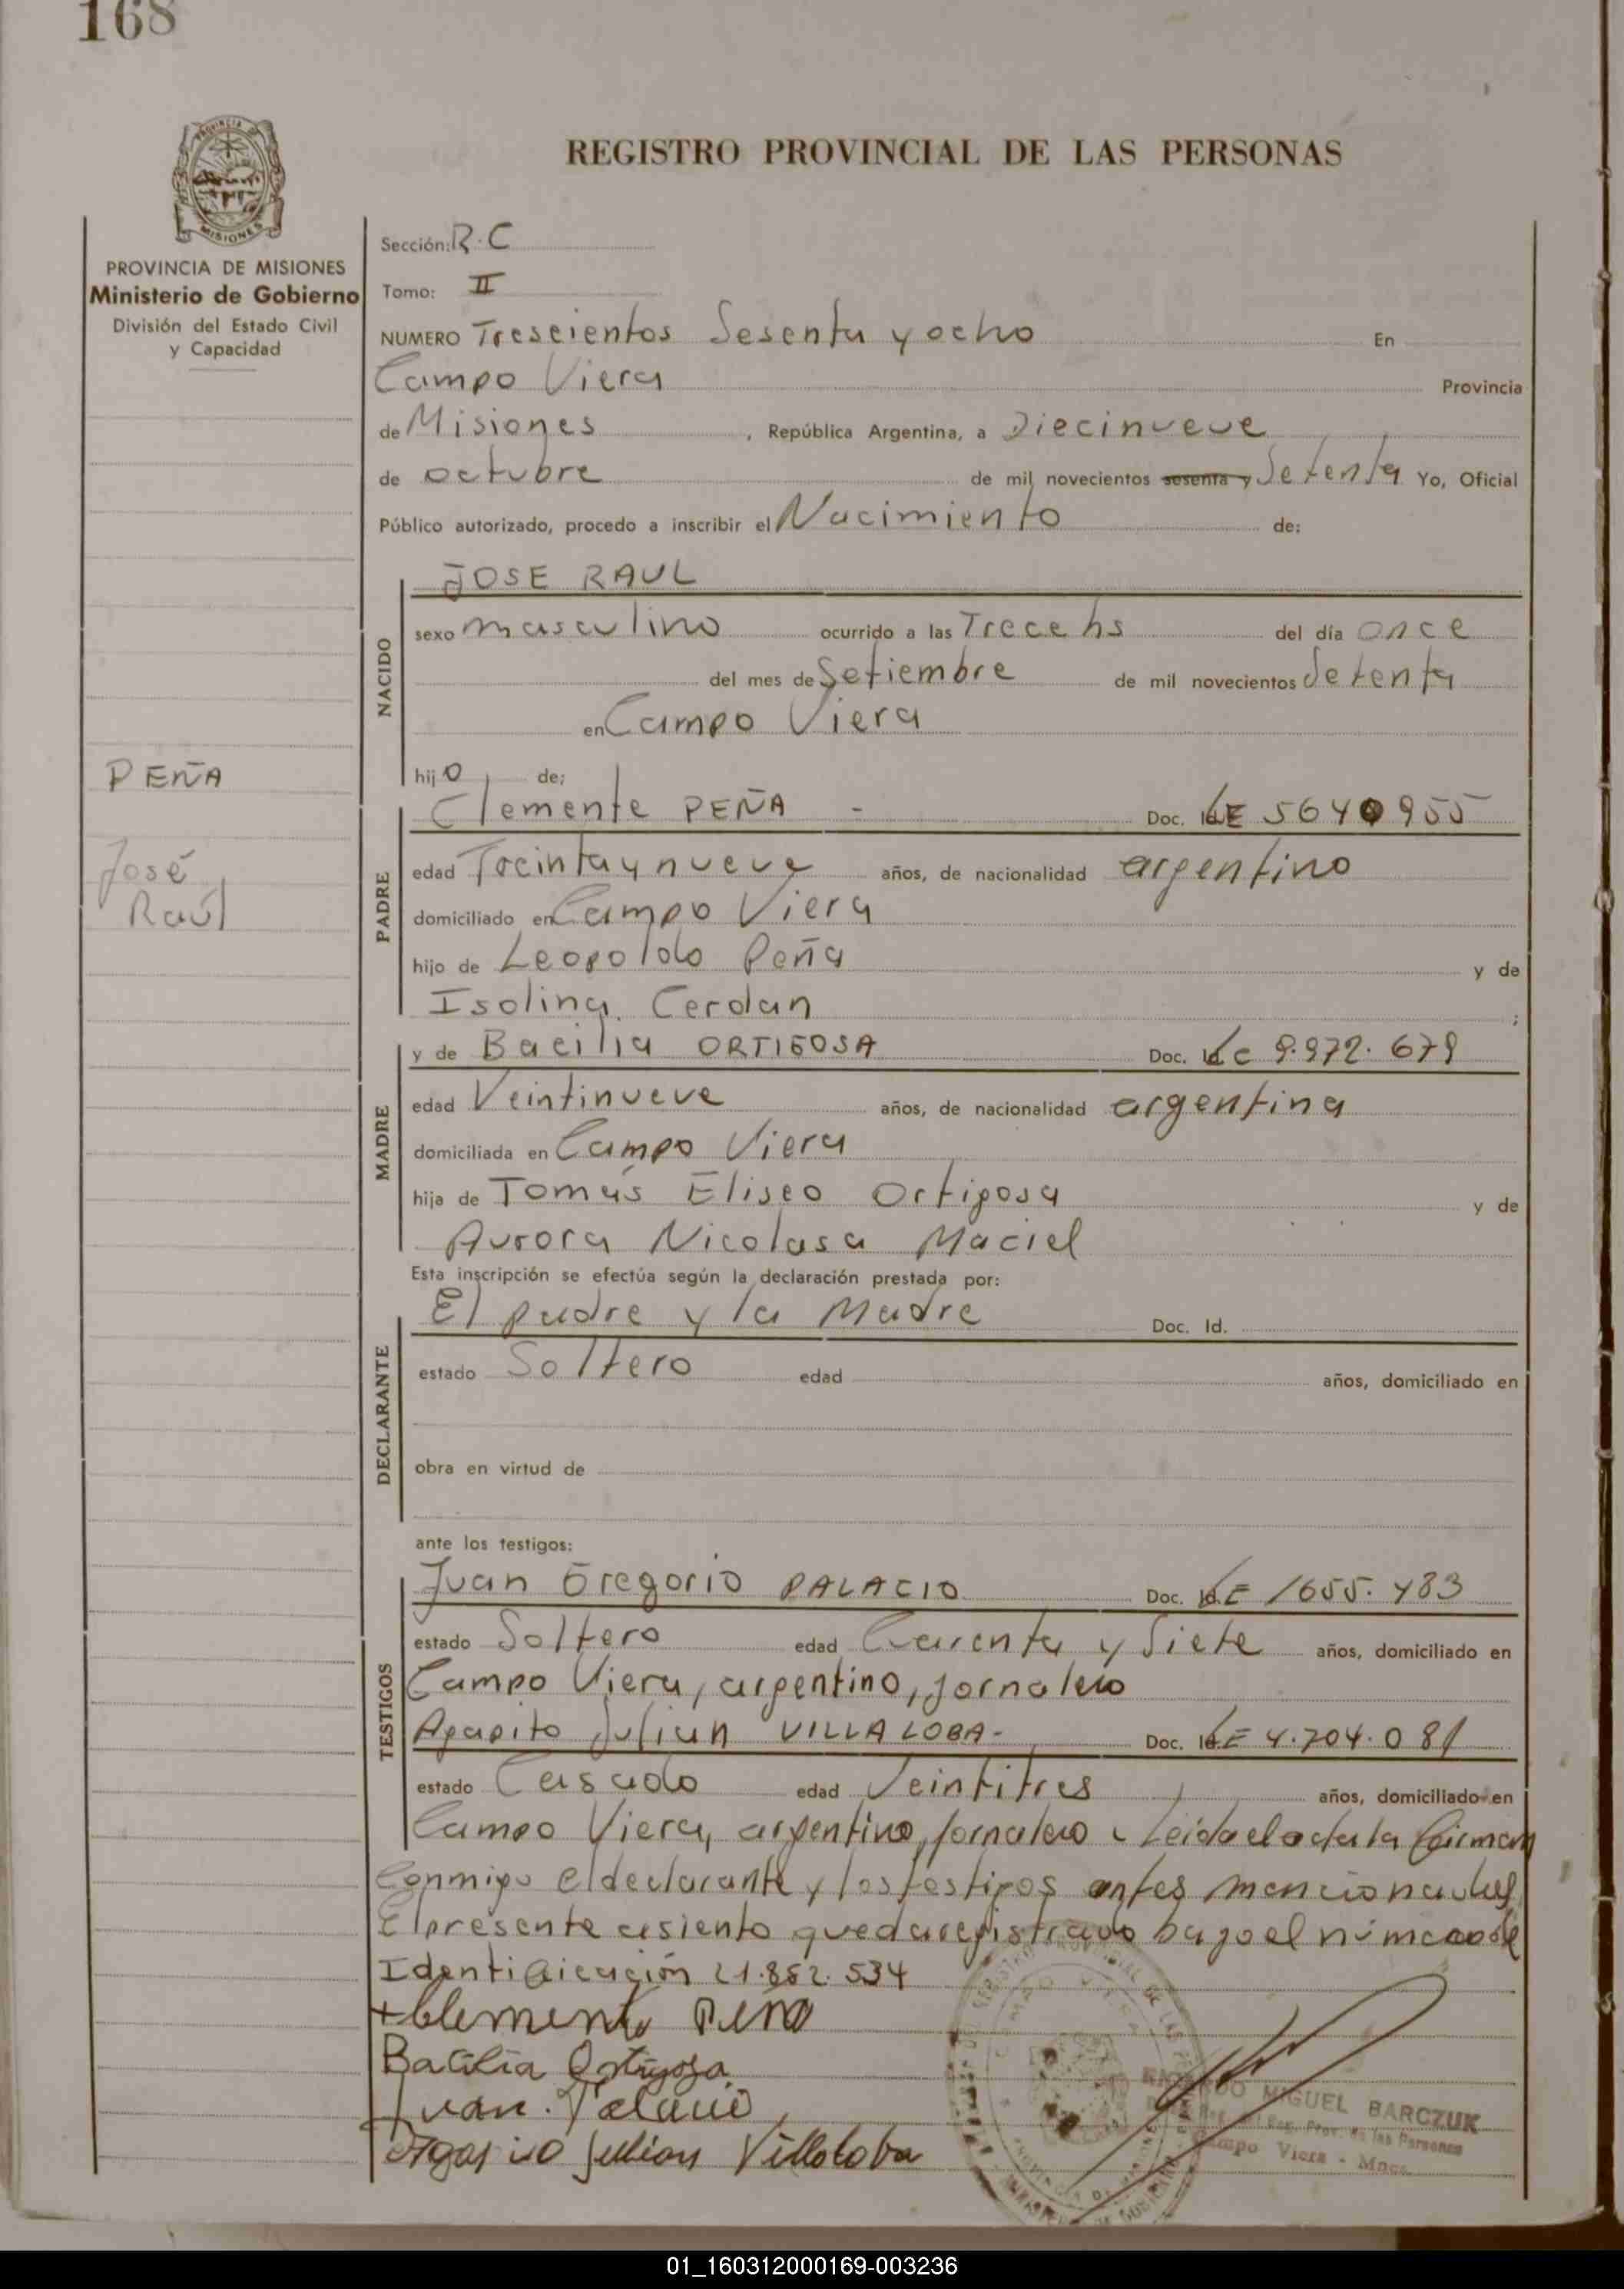 168
REGISTRO PROVINCIAL DE LAS PERSONAS
PROVINCIA DE MISIONES
Ministerio de Gobierno
División del Estado Civil
y Capacidad
Sección: R.C
Tomo: II
NUMERO Trescientos Sesenta y ocho En
Campo Viera Provincia
de Misiones, República Argentina, a Diecinueve
de octubre de mil novecientos sesenta y Setenta Yo, Oficial
Público autorizado, procedo a inscribir el Nacimiento de:
NACIDO
JOSE RAUL
sexo masculino ocurrido a las Trece hs del día once
del mes de Setiembre de mil novecientos Setenta
en Campo Viera
hijo de;
PEÑA
José
Raúl
PADRE
Clemente PEÑA - Doc. LE 5640955
edad Treinta y nueve años, de nacionalidad argentino
domiciliado en Campo Viera
hijo de Leopoldo Peña y de
Isolina Cerdan ;
MADRE
y de Bacilia ORTIGOSA Doc. LC 9.972.679
edad Veintinueve años, de nacionalidad argentina
domiciliada en Campo Viera
hija de Tomás Eliseo Ortigosa y de
Aurora Nicolasa Maciel
Esta inscripción se efectúa según la declaración prestada por:
DECLARANTE
El padre y la Madre Doc. Id.
estado Soltero edad años, domiciliado en
obra en virtud de
ante los testigos:
TESTIGOS
Juan Gregorio PALACIO Doc. LE 1655.483
estado Soltero edad Cuarenta y Siete años, domiciliado en
Campo Viera, argentino, jornalero
Agapito Julian VILLALOBA- Doc. LE 4.704.081
estado Casado edad Veintitres años, domiciliado en
Campo Viera, argentino, jornalero Leida el acta la firman
Conmigo el declarante y los testigos antes mencionados
El presente asiento queda registrado bajo el número de
Identificación 21.852.534
Clemente Peña
Bacilia Ortigosa
Juan. Palacio
Agapito Julian Villaloba
RICARDO MIGUEL BARCZUK
Reg. Prov. de las Personas
Campo Viera - Mnes.
01_160312000169-003236